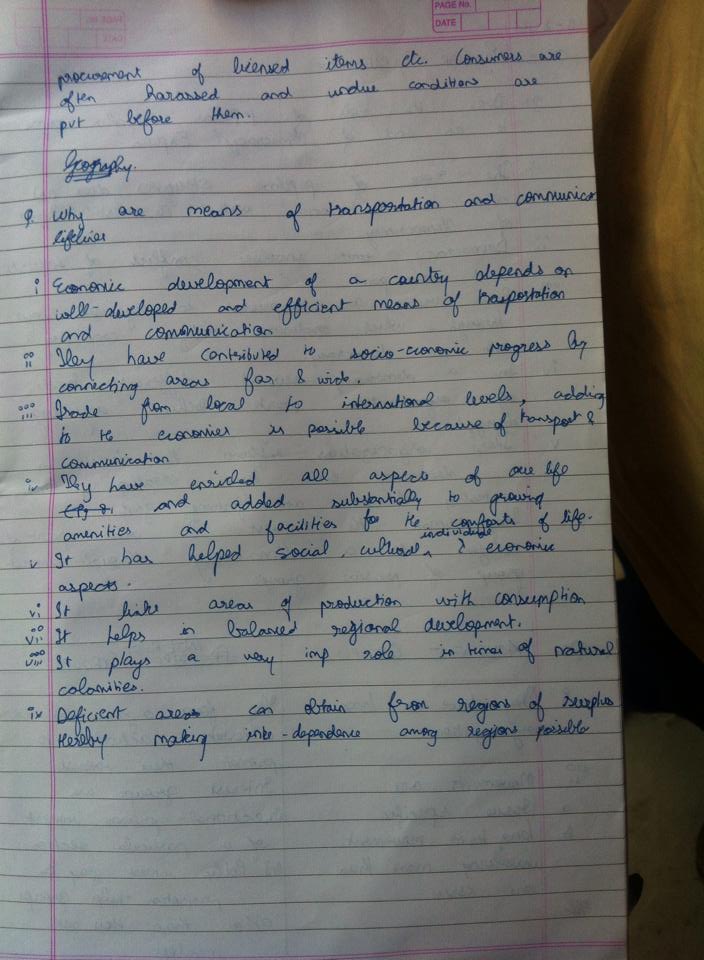 PAGE No.
DATE
procurement of licensed items etc. Consumers are
often harassed and undue conditions are
put before them.
Geography.
Q. Why are means of transportation and communica
lifelines
i Economic development of a country depends on
well-developed and efficient means of transportation
and communication
ii They have contributed to socio-economic progress by
connecting areas far & wide.
iii Trade from local to international levels, adding
to the economies is possible because of transport &
communication
iv They have enriched all aspects of our life
and added substantially to growing
amenities and facilities for the comforts of life.
v It has helped social, cultural, individual & economic
aspects.
vi It links areas of production with consumption
vii It helps in balanced regional development.
viii It plays a very imp role in times of natural
calamities.
ix Deficient areas can obtain from regions of surplus
thereby making inter-dependence among regions possible